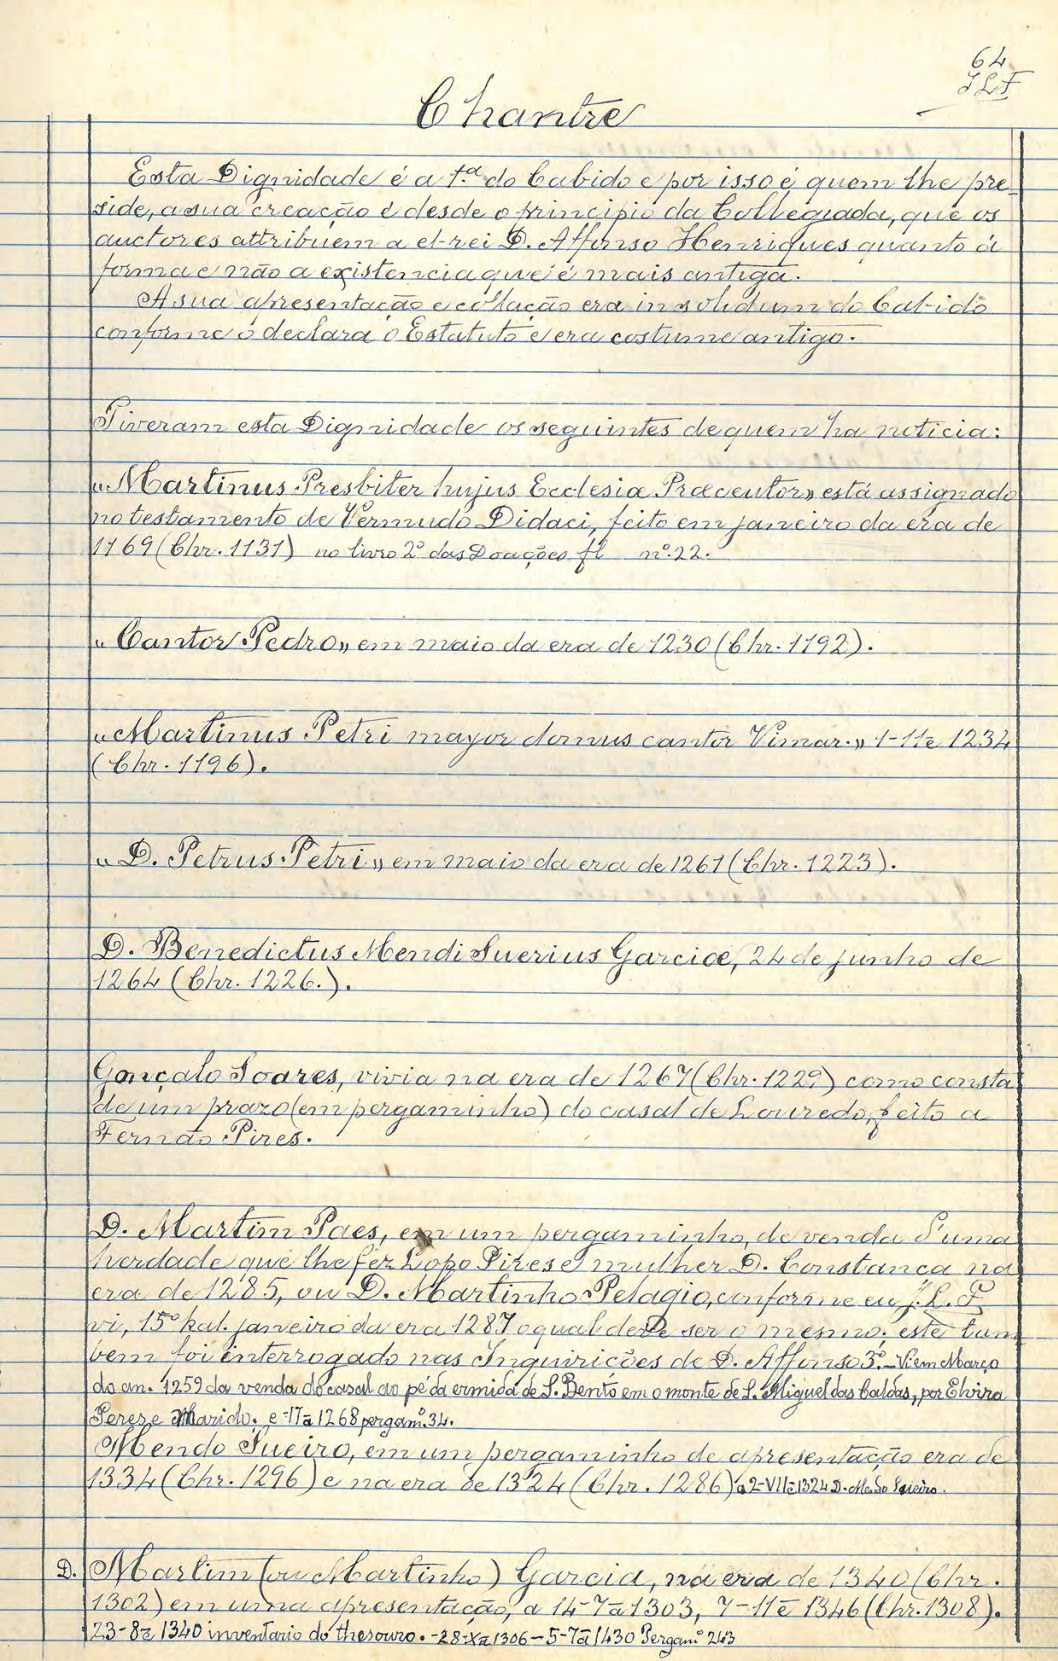 64
J L F
Chantre
Esta Dignidade é a 1.ª do Cabido e por isso é quem lhe pre-
side, a sua creação é desde o principio da Collegiada, que os
auctores attribuem a el-rei D. Affonso Henriques quanto á
forma e não a existencia que é mais antiga.
A sua apresentação e collação era in solidum do Cabido
conforme o declara o Estatuto e era costume antigo.
Tiveram esta Dignidade os seguintes de quem ha noticia:
"Martinus Presbiter hujus Ecclesiæ Præcentor" está assignado
no testamento de Vermudo Didaci, feito em janeiro da era de
1169 (Chr. 1131) no livro 2º das Doações fl nº 22.
"Cantor Pedro" em maio da era de 1230 (Chr. 1192).
"Martinus Petri mayor domus cantor Vimar." 1-11ē 1234
(Chr. 1196).
"D. Petrus Petri" em maio da era de 1261 (Chr. 1223).
D. Benedictus Mendi Suerius Garciæ, 24 de junho de
1264 (Chr. 1226.).
Gonçalo Soares, vivia na era de 1267 (Chr. 1229) como consta
de um prazo (em pergaminho) do casal de Louredo, feito a
Fernão Pires.
D. Martim Paes, em um pergaminho, de venda d'uma
herdade que lhe fez Lopo Pires e mulher D. Constança na
era de 1285, ou D. Martinho Pelagio, conforme eu J. L. F.
vi, 15º kal. janeiro da era 1287 o qual deve ser o mesmo. este tam
bem foi interrogado nas Inquirições de D. Affonso 3º. - Vi em Março
do an. 1259 da venda do casal ao pé da ermida de S. Bento em o monte de S. Miguel das Caldas, por Elvira
Peres e Marido. e -17ā 1268 pergamº 34.
Mendo Sueiro, em um pergaminho de apresentação era de
1334 (Chr. 1296) e na era de 1324 (Chr. 1286) a 2-VII-ē 1324 D. Mendo Sueiro.
D. Martim (ou Martinho) Garcia, na era de 1340 (Chr.
1302) em uma apresentação, a 14-7ā 1303, 7-11ē 1346 (Chr. 1308).
23-8ē 1340 inventario do thesouro. -28-Xā 1306 - 5-7ā 1430 Pergamº 243